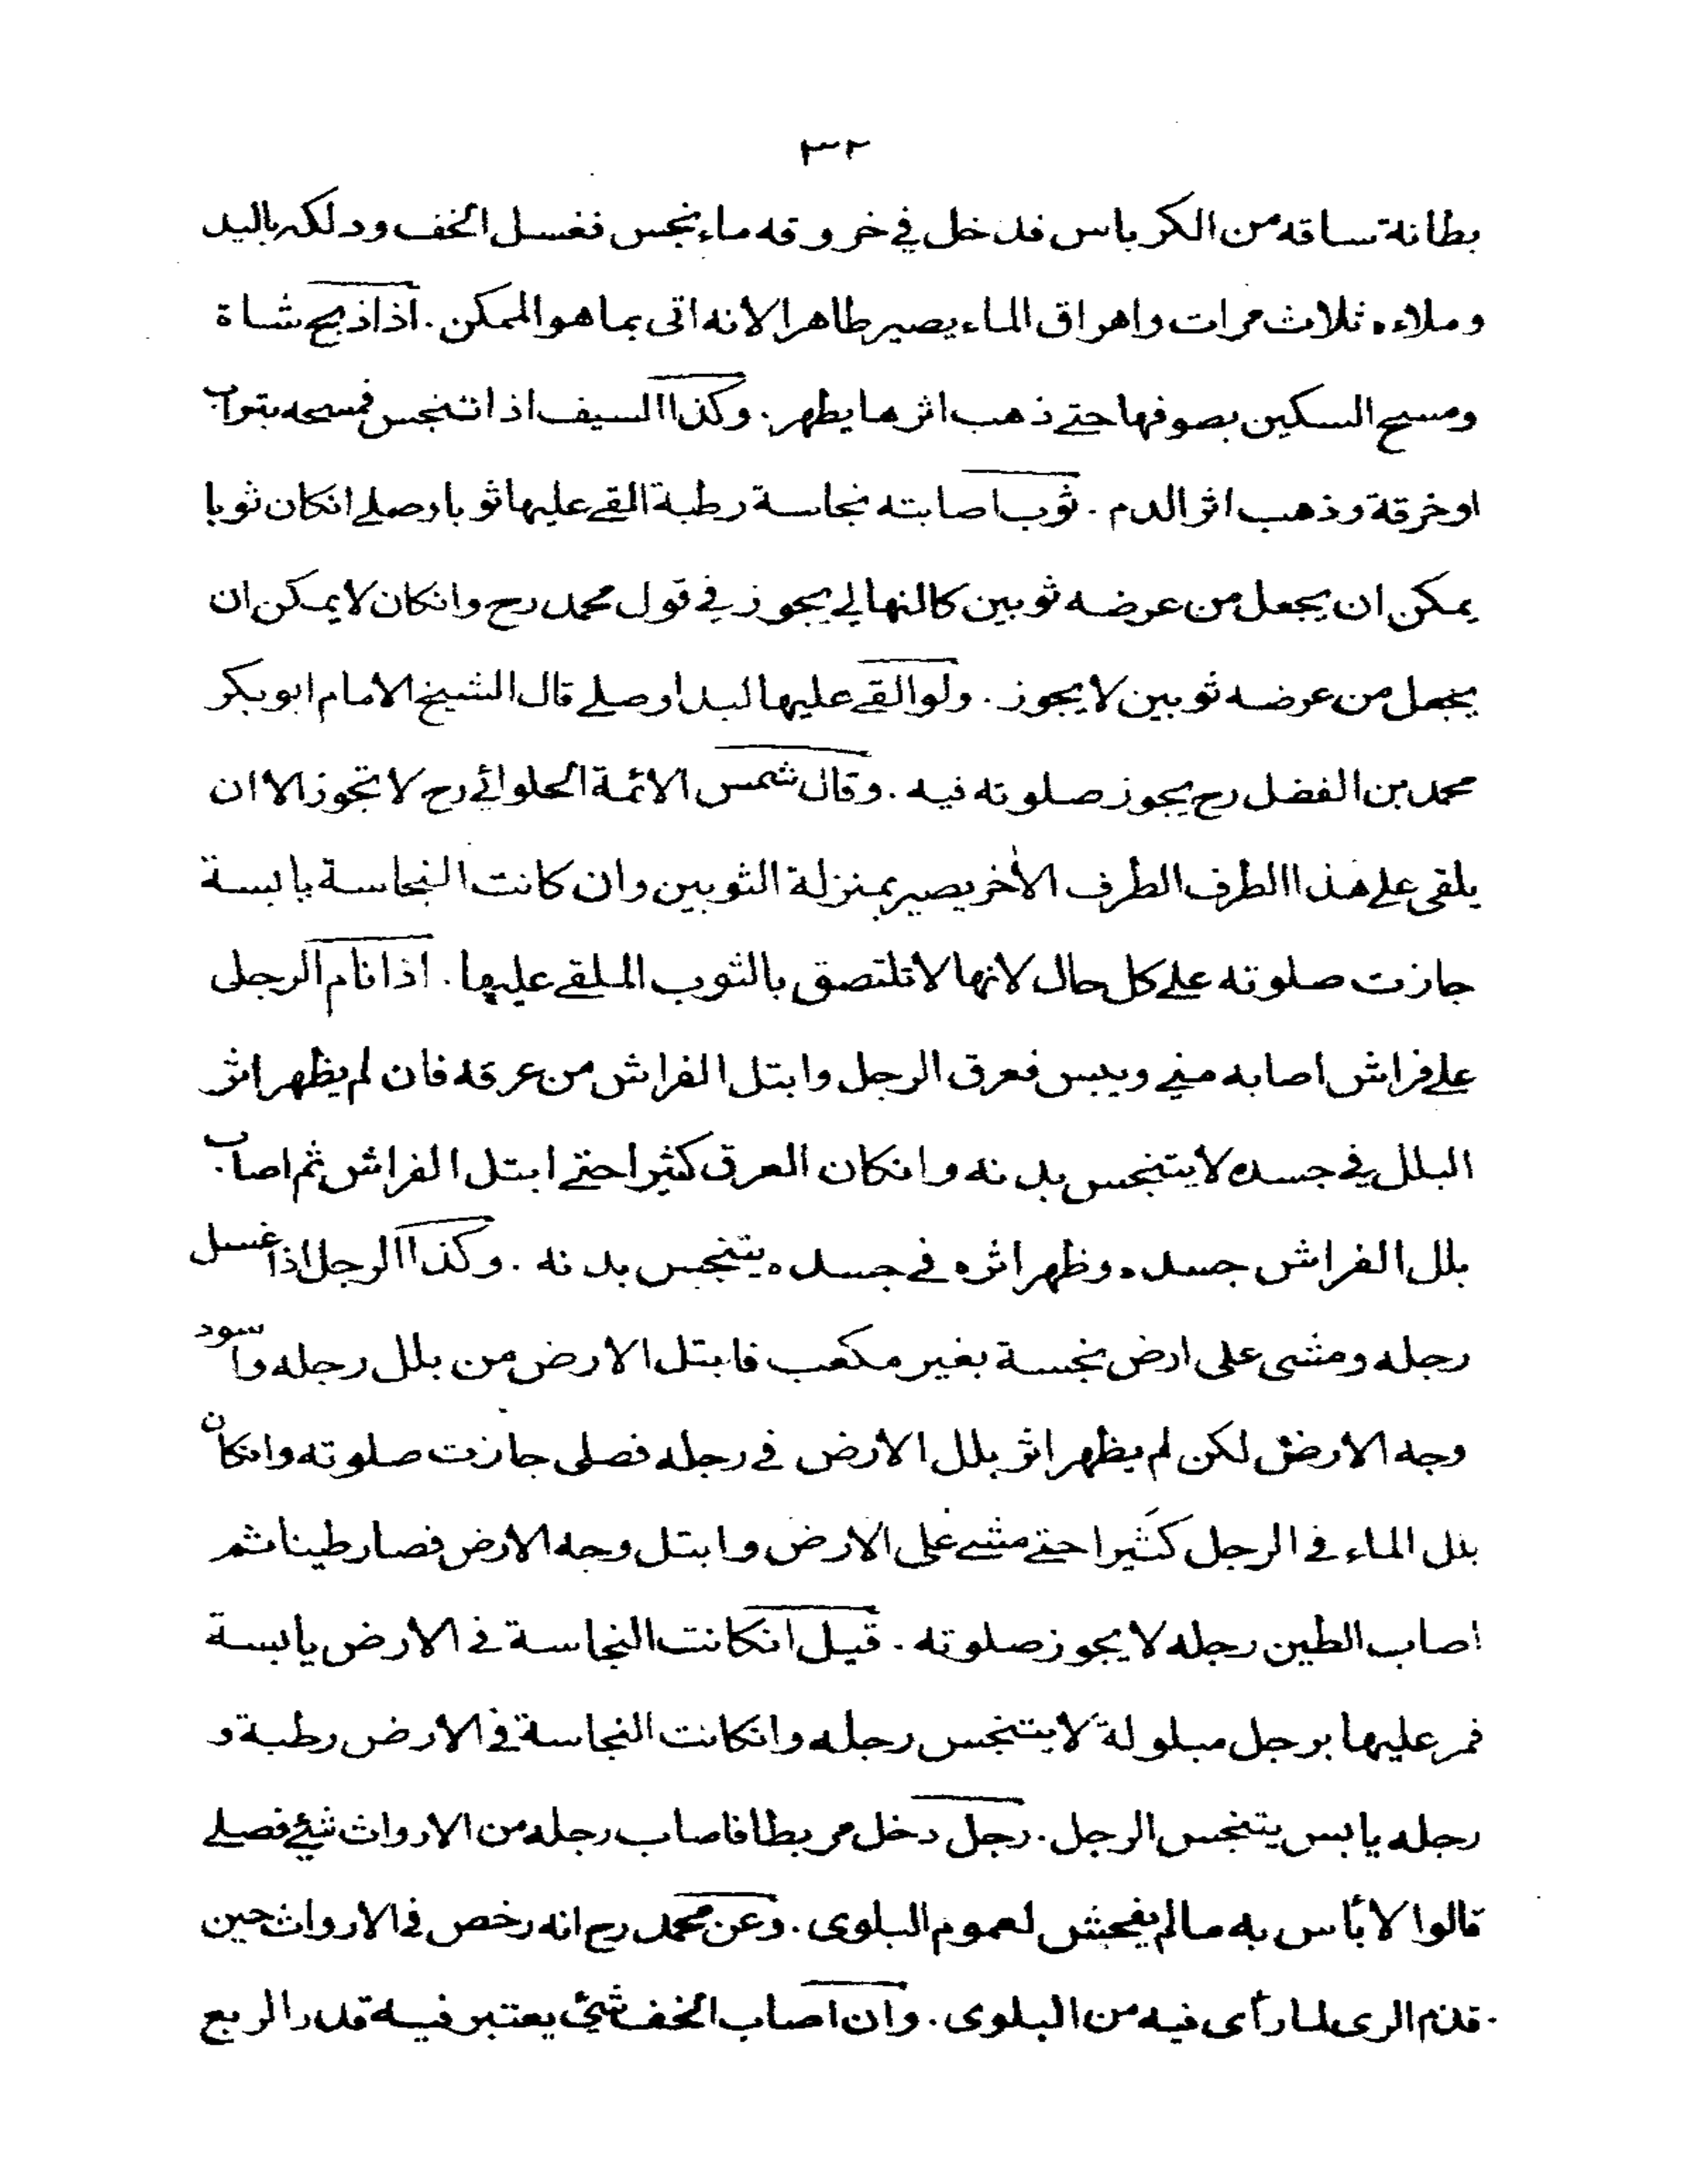 ٣٢
بطانة ساقه من الكرباس فدخل في خروقه ماء نجس فغسل الخف ودلكه باليد
وملاءه ثلاث مرات واهراق الماء يصير طاهرا لانه اتى بما هو الممكن . اذا ذبح شاة
ومسح السكين بصوفها حتے ذهب اثرها يطهر . وكذا السيف اذا تنجس فمسحه بتراب
او خرقة وذهب اثر الدم . ثوب اصابته نجاسة رطبة القے عليها ثوبا وصلے انكان ثوبا
يمكن ان يجعل من عرضه ثوبين كالنهالي يجوز في قول محمد رح وانكان لا يمكن ان
يجعل من عرضه ثوبين لا يجوز . ولو القے عليها لبدا وصلے قال الشيخ الامام ابو بكر
محمد بن الفضل رح يجوز صلوته فيه . وقال شمس الائمة الحلوائے رح لا تجوز الا ان
يلقى علے هذا الطرف الطرف الأخر يصير بمنزلة الثوبين وان كانت النجاسة يابسة
جازت صلوته علے كل حال لانها لا تلتصق بالثوب الملقے عليها . اذا نام الرجل
علے فراش اصابه منے ويبس فعرق الرجل وابتل الفراش من عرقه فان لم يظهر اثر
البلل في جسده لا يتنجس بدنه وانكان العرق كثيرا حتے ابتل الفراش ثم اصاب
بلل الفراش جسده وظهر اثره في جسده يتنجس بدنه . وكذا الرجل اذا غسل
رجله ومشى على ارض نجسة بغير مكعب فابتل الارض من بلل رجله واسود
وجه الارض لكن لم يظهر اثر بلل الارض في رجله فصلى جازت صلوته وانكان
بلل الماء في الرجل كثيرا حتے مشے على الارض وابتل وجه الارض فصار طينا ثم
اصاب الطين رجله لا يجوز صلوته . قيل انكانت النجاسة في الارض يابسة
فمر عليها برجل مبلولة لا يتنجس رجله وانكانت النجاسة في الارض رطبة و
رجله يابس يتنجس الرجل . رجل دخل مربطا فاصاب رجله من الارواث شئ فصلے
قالوا لا بأس به ما لم يفحش لعموم البلوى . وعن محمد رح انه رخص في الارواث حين
قدم الرى لما رأى فيه من البلوى . وان اصاب الخف شئ يعتبر فيه قدر الربع